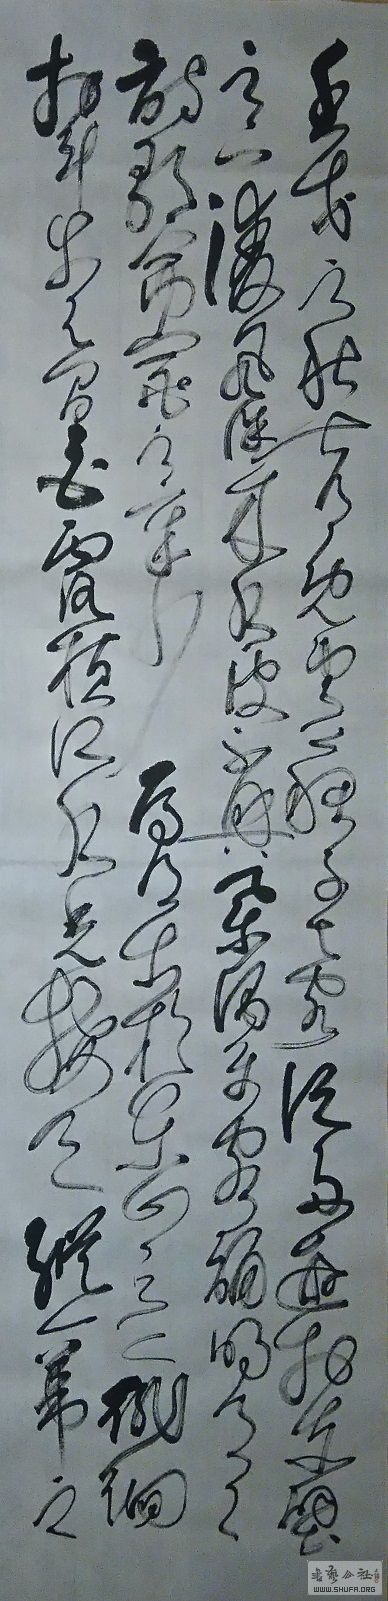 壬戌之秋七月既望蘇子與客泛舟遊於赤壁
之下清風徐來水波不興舉酒屬客誦明月之
詩歌窈窕之章少焉月出於東山之上徘徊
於斗牛之間白露橫江水光接天縱一葦之
書藝公社
WWW.SHUFA.ORG